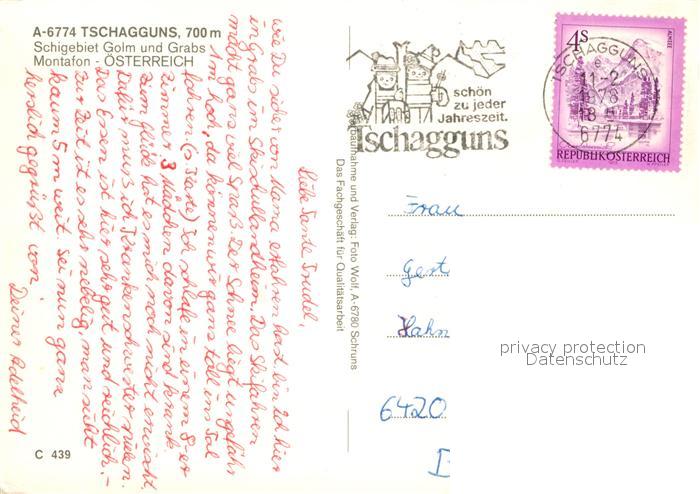 A-6774 TSCHAGGUNS, 700 m
Schigebiet Golm und Grabs
Montafon - ÖSTERREICH
Liebe Tante Trudel,
wie Du sicher von Mama erfahren hast, bin ich hier
in Grabs im Skischullandheim. Das Skifahren
macht ganz viel Spaß. Der Schnee liegt ungefähr
1m hoch, da können wir ganz toll ins Tal
fahren (is Taste) Ich schlafe in einem 8-er
zimmer. 3 Mädchen davon sind krank.
zum Glück hat es mich noch nicht erwischt.
Dafür muss ich Krankenschwester spielen.
Das Essen ist hier sehr gut und reichlich.-
zur Zeit ist es sehr nebelig, man sieht
kaum 5 m weit. Sei nun ganz
herzlich gegrüßt von,
Deiner Adelheid
C 439
Farbaufnahme und Verlag: Foto Wolf, A-6780 Schruns
Das Fachgeschäft für Qualitätsarbeit
schön
zu jeder
Jahreszeit.
Tschagguns
TSCHAGGUNS
11-2
1978
18
6774
4S
REPUBLIK ÖSTERREICH
Frau
Gert
Hahn
privacy protection
Datenschutz
6420